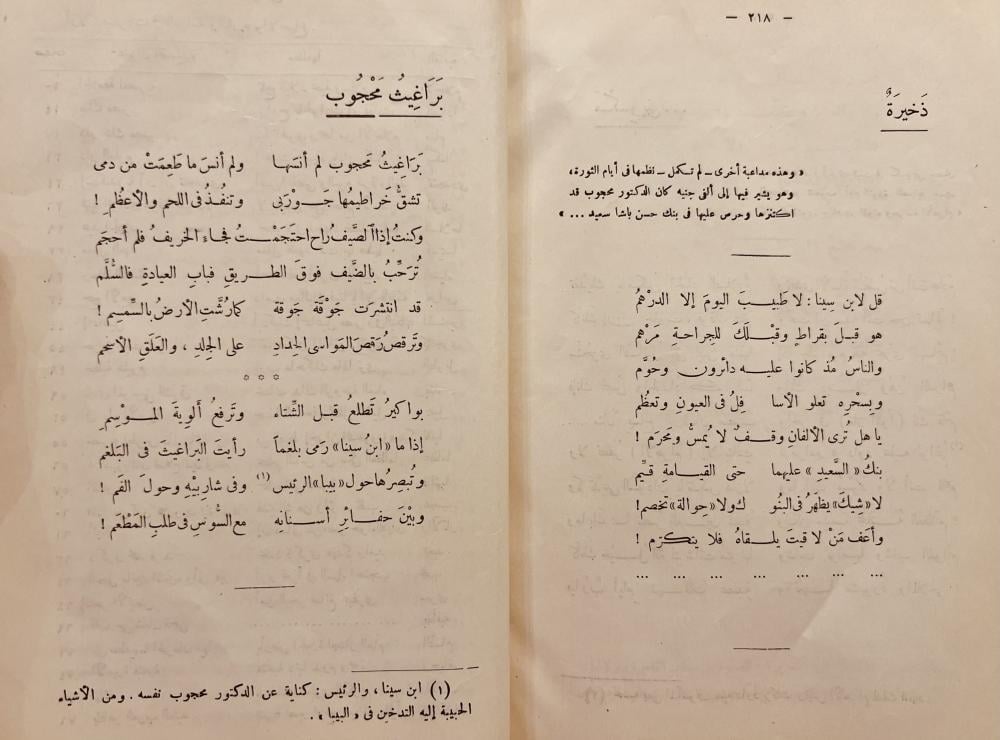 — ٢١٨ —
ذَخيرَةٌ
« وهذه مداعبة أخرى ــ لم تكمل ــ نظمها فى أيام الثورة،
وهو يشير فيها إلى ألفى جنيه كان الدكتور محجوب قد
اكتنزها وحرس عليها فى بنك حسن باشا سعيد ... »
قل لابن سِينا: لا طَبيبَ اليومَ إلا الدرْهُم
هو قبلَ بقراطٍ وقبْلَكَ للجراحةِ مَرْهم
والناسُ مُذ كانوا عليه دائرون وحُوَّم
وبِسحْرِه تعلو الأسا فِلُ فى العيونِ وتعظُم
يا هل تُرى الألفانِ وقفٌ لا يُمسُّ ومَحرَم !
بنكُ « السَّعيدِ » عليهما حتى القيامةِ قيِّم
لا « شِيكَ » يظهَرُ فى البنُو ك ولا « حِوالة » تخصم!
وأعَفّ مَنْ لاقيتَ يلقاهُ فلا يتكرَّم !
... ... ... ... ... ... ...
بَرَاغِيثُ مَحْجُوب
بَرَاغِيثُ مَحجوب لم أنسَها ولم أنسَ ما طَعِمَتْ من دمى
تشقُّ خَراطيمُها جَوْرَبى وتنفُذُ فى اللحم والأعظُمِ !
وكنتُ إذا الصَّيفُ راح احتجَمْتُ فجاء الخريفُ فلم أحجَم
تُرَحِّبُ بالضَّيف فوقَ الطريقِ فبابِ العيادةِ فالسُّلَّم
قد انتشرَت جَوْقَة جَوقة كما رُشَّتِ الأرضُ بالسِّمسِم !
وتَرقصُ رَقصَ المَواسى الحِدادِ على الجِلدِ ، والعَلَقِ الأسحم
* * *
بواكيرُ تَطلعُ قبل الشِّتاء وتَرفعُ ألويةَ الموْسِمِ
إذا ما « ابنُ سينا » رَمى بلغماً رأيتَ البَراغيثَ فى البَلغمِ
وتُبصِرُها حول « بيبا » الرئيس (١) وفى شاربيْهِ وحولَ الفَم !
وبيْنَ حفائرِ أسنانِه مع السُّوسِ فى طلبِ المَطْعَمِ !
(١) ابن سينا، والرئيس : كناية عن الدكتور محجوب نفسه . ومن الأشياء
الحبيبة إليه التدخين فى « البيبا » .